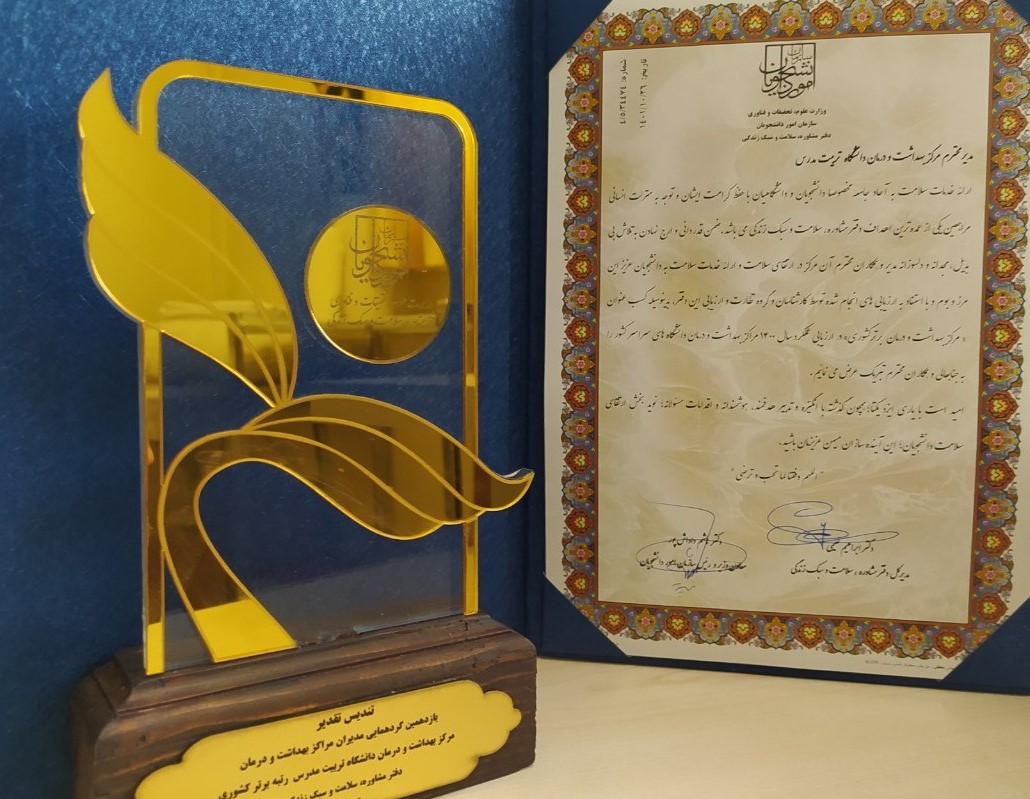 سازمان
امور دانشجویان
شماره: ۴/۵/۳۴۴۷۴
تاریخ: ۱۴۰۱/۱۰/۲۶
وزارت علوم، تحقیقات و فناوری
سازمان امور دانشجویان
دفتر مشاوره، سلامت و سبک زندگی
مدیر محترم مرکز بهداشت و درمان دانشگاه تربیت مدرس
ارائه خدمات سلامت به آحاد جامعه مخصوصا دانشجویان و دانشگاهیان با حفظ کرامت ایشان و توجه به منزلت انسانی
مراجعین یکی از عمده ترین اهداف دفتر مشاوره، سلامت و سبک زندگی می باشد. ضمن قدردانی و ارج نهادن به تلاش بی
بدیل، مجدانه و دلسوزانه مدیر و همکاران محترم آن مرکز در ارتقای سلامت و ارائه خدمات سلامت به دانشجویان عزیز این
مرز و بوم و با استناد به ارزیابی های انجام شده توسط کارشناسان و گروه نظارت و ارزیابی این دفتر، بدینوسیله کسب عنوان
« مرکز بهداشت و درمان برتر کشوری» در ارزیابی عملکرد سال ۱۴۰۰ مراکز بهداشت و درمان دانشگاه های سراسر کشور را
به جنابعالی و همکاران محترم تبریک عرض می نمایم.
امید است با یاری ایزد یکتا؛ همچون گذشته با انگیزه و تدبیر هدفمند، هوشمندانه و اقدامات مسئولانه؛ نوید بخش ارتقای
سلامت دانشجویان؛ این آینده سازان میهن عزیزمان باشید.
" اللهم وفقنا لما تحب و ترضی "
دکتر ابراهیم نعیمی
مدیرکل دفتر مشاوره، سلامت و سبک زندگی
دکتر هاشم داداش پور
معاون وزیر و رئیس سازمان امور دانشجویان
سازمان
امور دانشجویان
وزارت علوم، تحقیقات و فناوری
سلامت و سبک زندگی
تندیس تقدیر
یازدهمین گردهمایی مدیران مراکز بهداشت و درمان
مرکز بهداشت و درمان دانشگاه تربیت مدرس رتبه برتر کشوری
دفتر مشاوره، سلامت و سبک